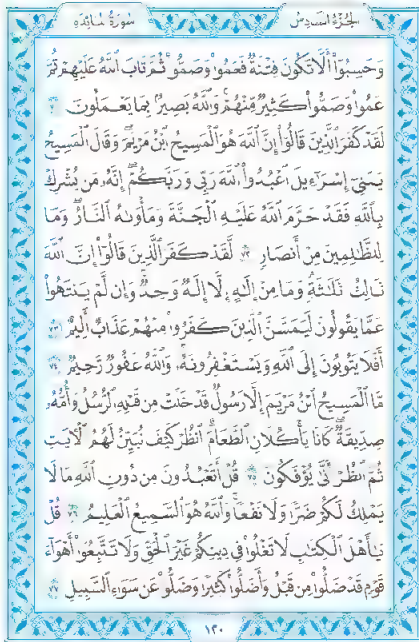 الجزء السادس
سورة مائده
وَحَسِبُوٓا۟ أَلَّا تَكُونَ فِتْنَةٌ فَعَمُوا۟ وَصَمُّوا۟ ثُمَّ تَابَ ٱللَّهُ عَلَيْهِمْ ثُمَّ
عَمُوا۟ وَصَمُّوا۟ كَثِيرٌ مِّنْهُمْ وَٱللَّهُ بَصِيرٌۢ بِمَا يَعْمَلُونَ
لَقَدْ كَفَرَ ٱلَّذِينَ قَالُوٓا۟ إِنَّ ٱللَّهَ هُوَ ٱلْمَسِيحُ ٱبْنُ مَرْيَمَ وَقَالَ ٱلْمَسِيحُ
يَٰبَنِىٓ إِسْرَٰٓءِيلَ ٱعْبُدُوا۟ ٱللَّهَ رَبِّى وَرَبَّكُمْ إِنَّهُۥ مَن يُشْرِكْ
بِٱللَّهِ فَقَدْ حَرَّمَ ٱللَّهُ عَلَيْهِ ٱلْجَنَّةَ وَمَأْوَىٰهُ ٱلنَّارُ وَمَا
لِلظَّٰلِمِينَ مِنْ أَنصَارٍ ٧٢ لَّقَدْ كَفَرَ ٱلَّذِينَ قَالُوٓا۟ إِنَّ ٱللَّهَ
ثَالِثُ ثَلَٰثَةٍ وَمَا مِنْ إِلَٰهٍ إِلَّآ إِلَٰهٌ وَٰحِدٌ وَإِن لَّمْ يَنتَهُوا۟
عَمَّا يَقُولُونَ لَيَمَسَّنَّ ٱلَّذِينَ كَفَرُوا۟ مِنْهُمْ عَذَابٌ أَلِيمٌ ٧٣
أَفَلَا يَتُوبُونَ إِلَى ٱللَّهِ وَيَسْتَغْفِرُونَهُۥ وَٱللَّهُ غَفُورٌ رَّحِيمٌ ٧٤
مَّا ٱلْمَسِيحُ ٱبْنُ مَرْيَمَ إِلَّا رَسُولٌ قَدْ خَلَتْ مِن قَبْلِهِ ٱلرُّسُلُ وَأُمُّهُۥ
صِدِّيقَةٌ كَانَا يَأْكُلَانِ ٱلطَّعَامَ ٱنظُرْ كَيْفَ نُبَيِّنُ لَهُمُ ٱلْءَايَٰتِ
ثُمَّ ٱنظُرْ أَنَّىٰ يُؤْفَكُونَ ٧٥ قُلْ أَتَعْبُدُونَ مِن دُونِ ٱللَّهِ مَا لَا
يَمْلِكُ لَكُمْ ضَرًّا وَلَا نَفْعًا وَٱللَّهُ هُوَ ٱلسَّمِيعُ ٱلْعَلِيمُ ٧٦ قُلْ
يَٰٓأَهْلَ ٱلْكِتَٰبِ لَا تَغْلُوا۟ فِى دِينِكُمْ غَيْرَ ٱلْحَقِّ وَلَا تَتَّبِعُوٓا۟ أَهْوَآءَ
قَوْمٍ قَدْ ضَلُّوا۟ مِن قَبْلُ وَأَضَلُّوا۟ كَثِيرًا وَضَلُّوا۟ عَن سَوَآءِ ٱلسَّبِيلِ ٧٧
١٢٠